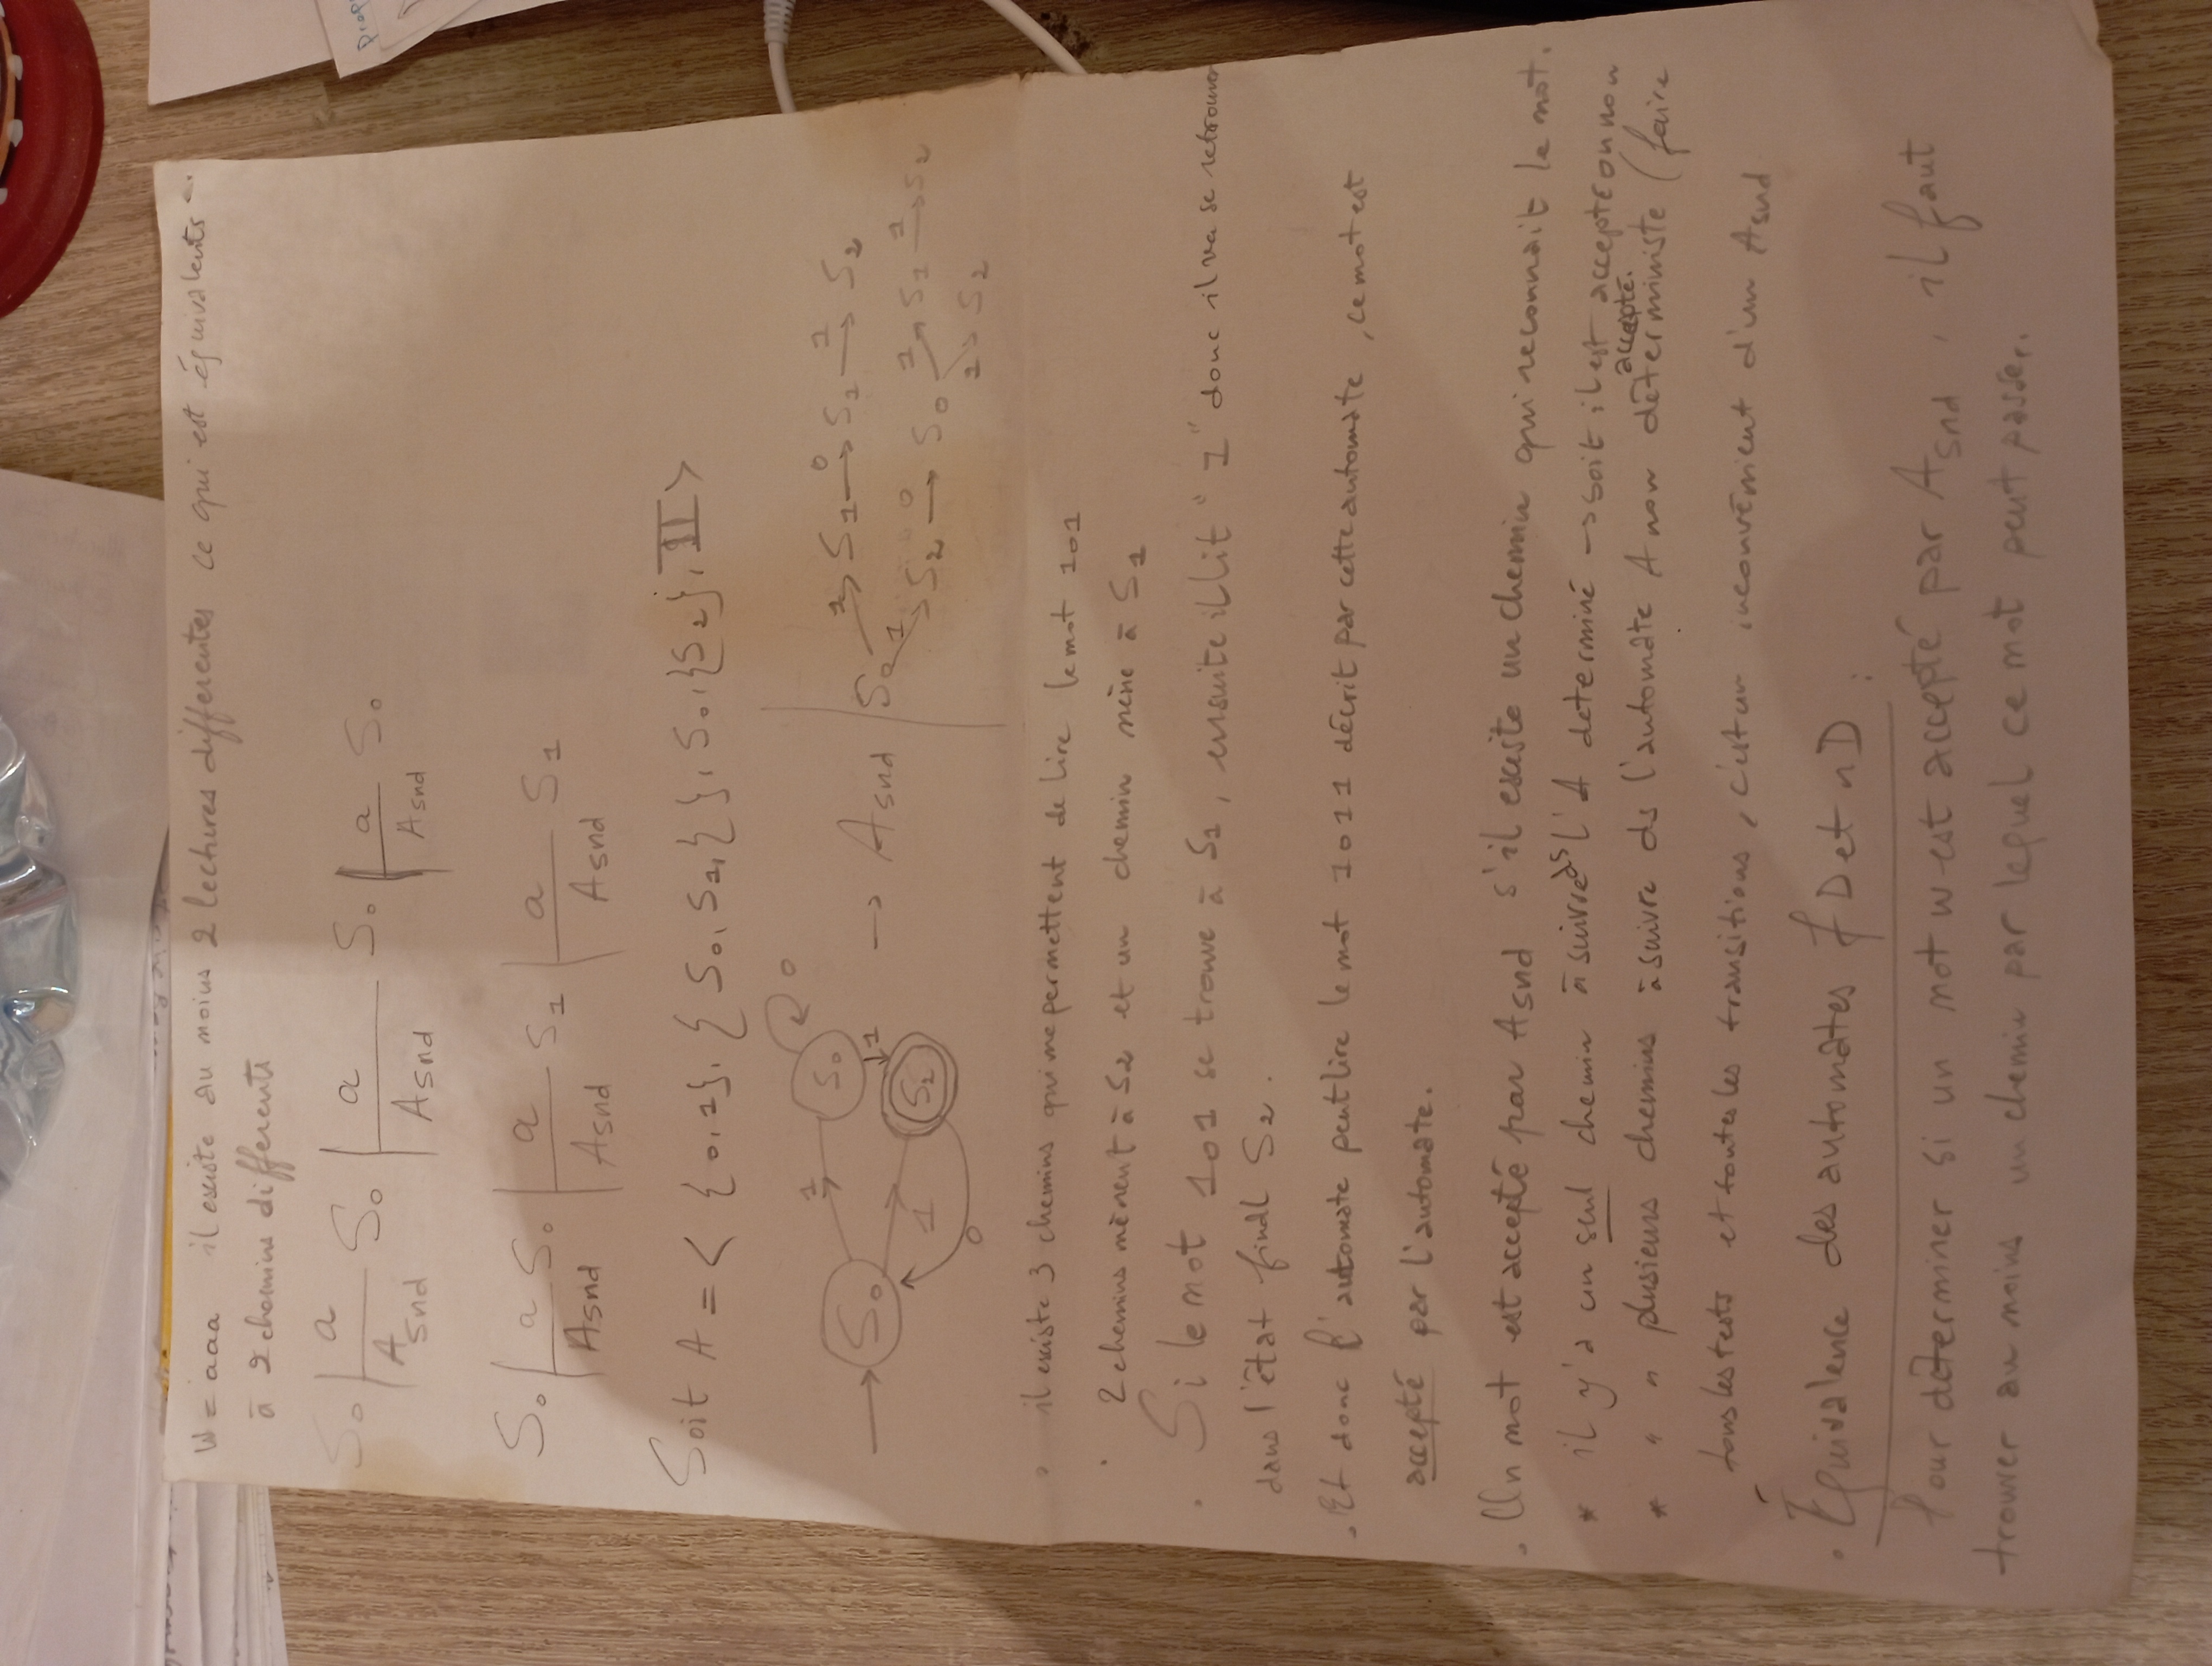 W = aaa il existe au moins 2 lectures differentes ce qui est équivalents
à 2 chemins differents
S₀ |a/Asnd S₀ |a/Asnd S₀ |a/Asnd S₀
S₀ |a/Asnd S₀ |a/Asnd S₁ |a/Asnd S₁
Soit A = < { 0, 1 }, { S₀, S₁, { }, S₀, {S₂}, II >
S₀ 1 S₀ 0
1 S₂ 1 0
→ Asnd
S₀ 1 S₁ 0 S₁ 1 S₂
1 S₂ 0 S₀ 1 S₁ 1 S₂
1 S₂
il existe 3 chemins qui me permettent de lire le mot 101
2 chemins mènent à S₂ et un chemin mène à S₁
. Si le mot 101 se trouve à S₁, ensuite il lit "1" donc il va se retrouver
dans l'état final S₂.
. Et donc l'automate peut lire le mot 1011 décrit par cette automate, ce mot est
accepté par l'automate.
. Un mot est accepté par Asnd s'il existe un chemin qui reconnait le mot.
* il y'a un seul chemin à suivre ds l'A determiné → soit il est accepté ou non
accepté.
* " " plusieurs chemins à suivre ds l'automate A non déterministe (faire
tous les tests et toutes les transitions, c'est un inconvénient d'un Asnd
. Équivalence des automates f D et nD :
Pour déterminer si un mot w est accepté par Asnd, il faut
trouver au moins un chemin par lequel ce mot peut passer.